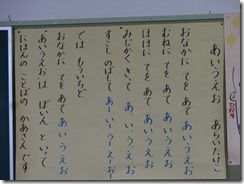 あいうえお あらいたけこ
おなかに てを あて あいうえお
むねに てを あて あいうえお
ほほに てを あて あいうえお
みじかく きって あ、い、う、え、お
すこし のばして あーいーうーえーおー
では もういちど
おなかに てを あて あいうえお
あいうえおは ぼいん といって
にほんの ことばの かあさんです